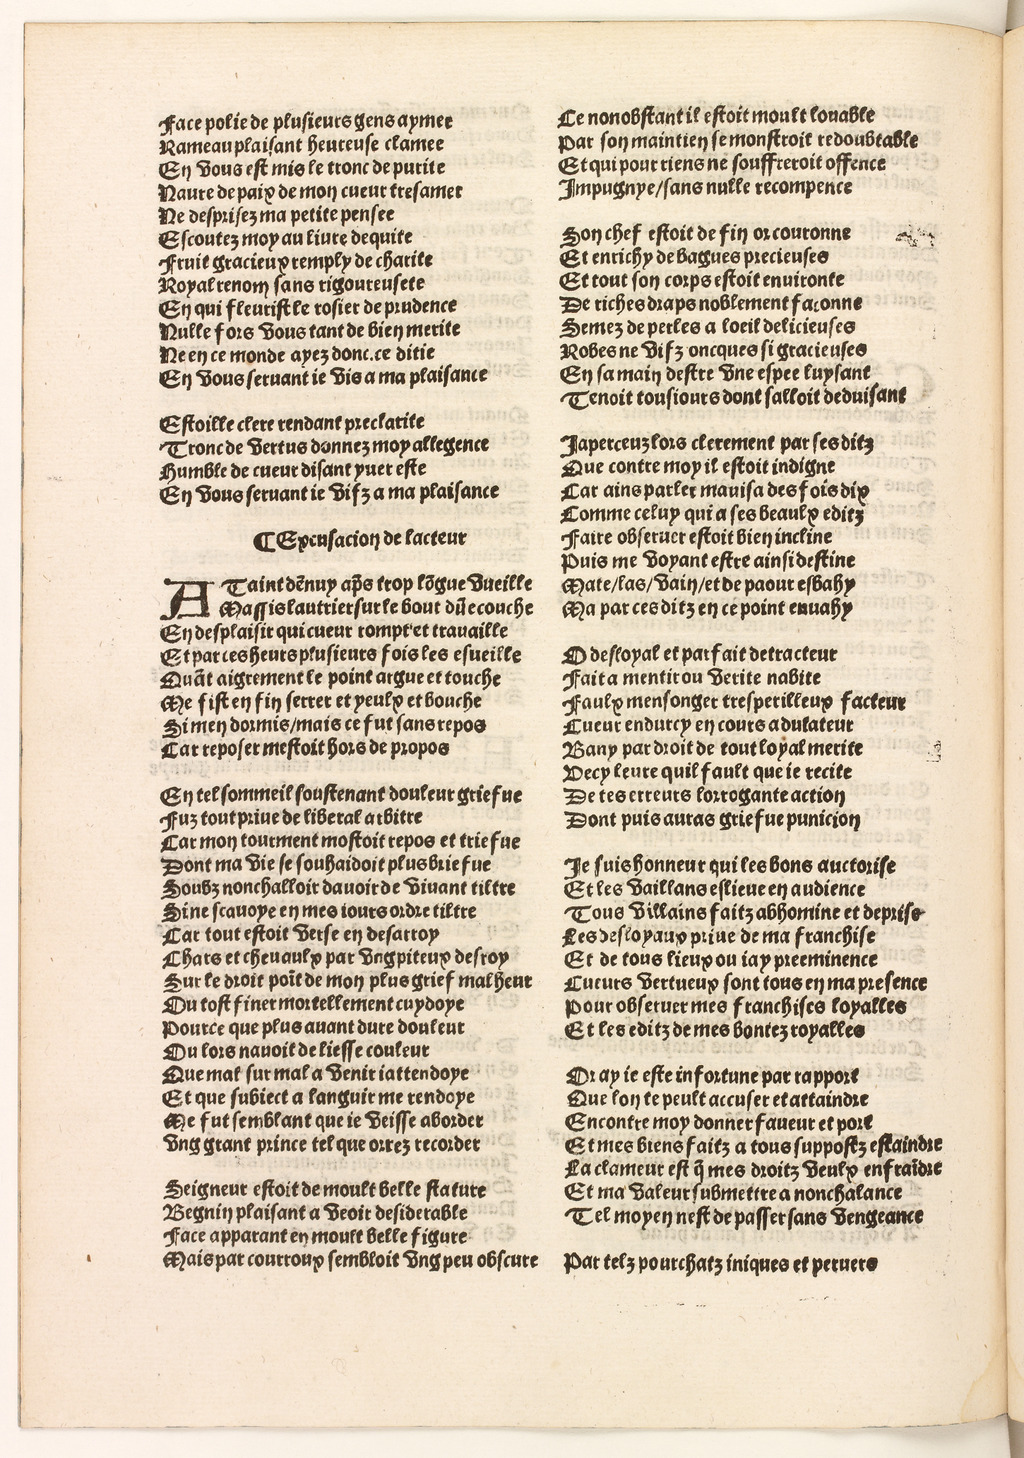 Face polie de plusieurs gens aymee
Rameau plaisant heureuse clamee
En vous est mis le tronc de purite
Navre de paix de mon cueur tresamer
Ne desprisez ma petite pensee
Escoutez moy au livre dequite
Fruit gracieux remply de charite
Royal renom sans rigoureusete
En qui fleurist le rosier de prudence
Nulle fors vous tant de bien merite
Ne en ce monde ayez donc.ce ditie
En vous servant ie vis a ma plaisance

Estoille clere rendant preclarite
Tronc de vertus donnez moy allegence
Humble de cueur disant yver este
En vous servant ie vifz a ma plaisance

¶Excusacion de lacteur

ATaint dēnuy ap̄s trop lōgue vueille
Massis lautrier sur le bout dūe couche
En desplaisir qui cueur rompt et travaille
Et par ces heurs plusieurs fois les esueille
Quāt aigrement le point argue et touche
Me fist en fin serrer et yeulx et bouche
Si men dormis/mais ce fut sans repos
Car reposer mestoit hors de propos

En tel sommeil soustenant douleur griefue
Fuz tout prive de liberal arbitre
Car mon tourment mostoit repos et triefue
Dont ma vie se souhaidoit plus briefue
Soubz nonchalloir davoir de vivant tiltre
Si ne scavoye en mes iours ordre tiltre
Car tout estoit verse en desarroy
Chars et chevaulx par ung piteux desroy
Sur le droit poīt de mon plus grief malheur
Ou tost finer mortellement cuydoye
Pource que plus avant dure douleur
Ou lors navoit de liesse couleur
Que mal sur mal a venir iattendoye
Et que subiect a languir me rendoye
Me fut semblant que ie veisse aborder
Ung grant prince tel que orrez recorder

Seigneur estoit de moult belle stature
Begnin plaisant a veoir desiderable
Face apparant en moult belle figure
Mais par courroux sembloit ung peu obscure

Ce nonobstant il estoit moult louable
Par son maintien se monstroit redoubtable
Et qui pour riens ne souffreroit offence
Impugnye/sans nulle recompence

Son chef estoit de fin or couronne
Et enrichy de bagues precieuses
Et tout son corps estoit environne
De riches draps noblement faconne
Semez de perles a loeil delicieuses
Robes ne vifz oncques si gracieuses
En sa main destre une espee luysant
Tenoit tousiours dont salloit deduisant

Iaperceuz lors clerement par ses ditz
Que contre moy il estoit indigne
Car ains parler mauisa des fois dix
Comme celuy qui a ses beaulx editz
Faire observer estoit bien incline
Puis me voyant estre ainsi destine
Mate/las/vain/et de paour esbahy
Ma par ces ditz en ce point envahy

O desloyal et parfait detracteur
Fait a mentir ou verite nabite
Faulx mensonger tresperilleux facteur
Cueur endurcy en cours adulateur
Bany par droit de tout loyal merite
Vecy leure quil fault que ie recite
De tes erreurs lorrogante action
Dont puis auras griefue punicion

Ie suis honneur qui les bons auctorise
Et les vaillans eslieue en audience
Tous villains faitz abhomine et deprise
Les desloyaux prive de ma franchise
Et de tous lieux ou iay preeminence
Cueurs vertueux sont tous en ma presence
Pour observer mes franchises loyalles
Et les editz de mes bontez royalles

Or ay ie este infortune par rapport
Que lon te peult accuser et attaindre
Encontre moy donner faveur et port
Et mes biens faitz a tous suppostz estaindre
La clameur est q̄ mes droitz veulx enfraīdre
Et ma valeur submettre a nonchalance
Tel moyen nest de passer sans vengeance

Par telz pourchatz iniques et pervers